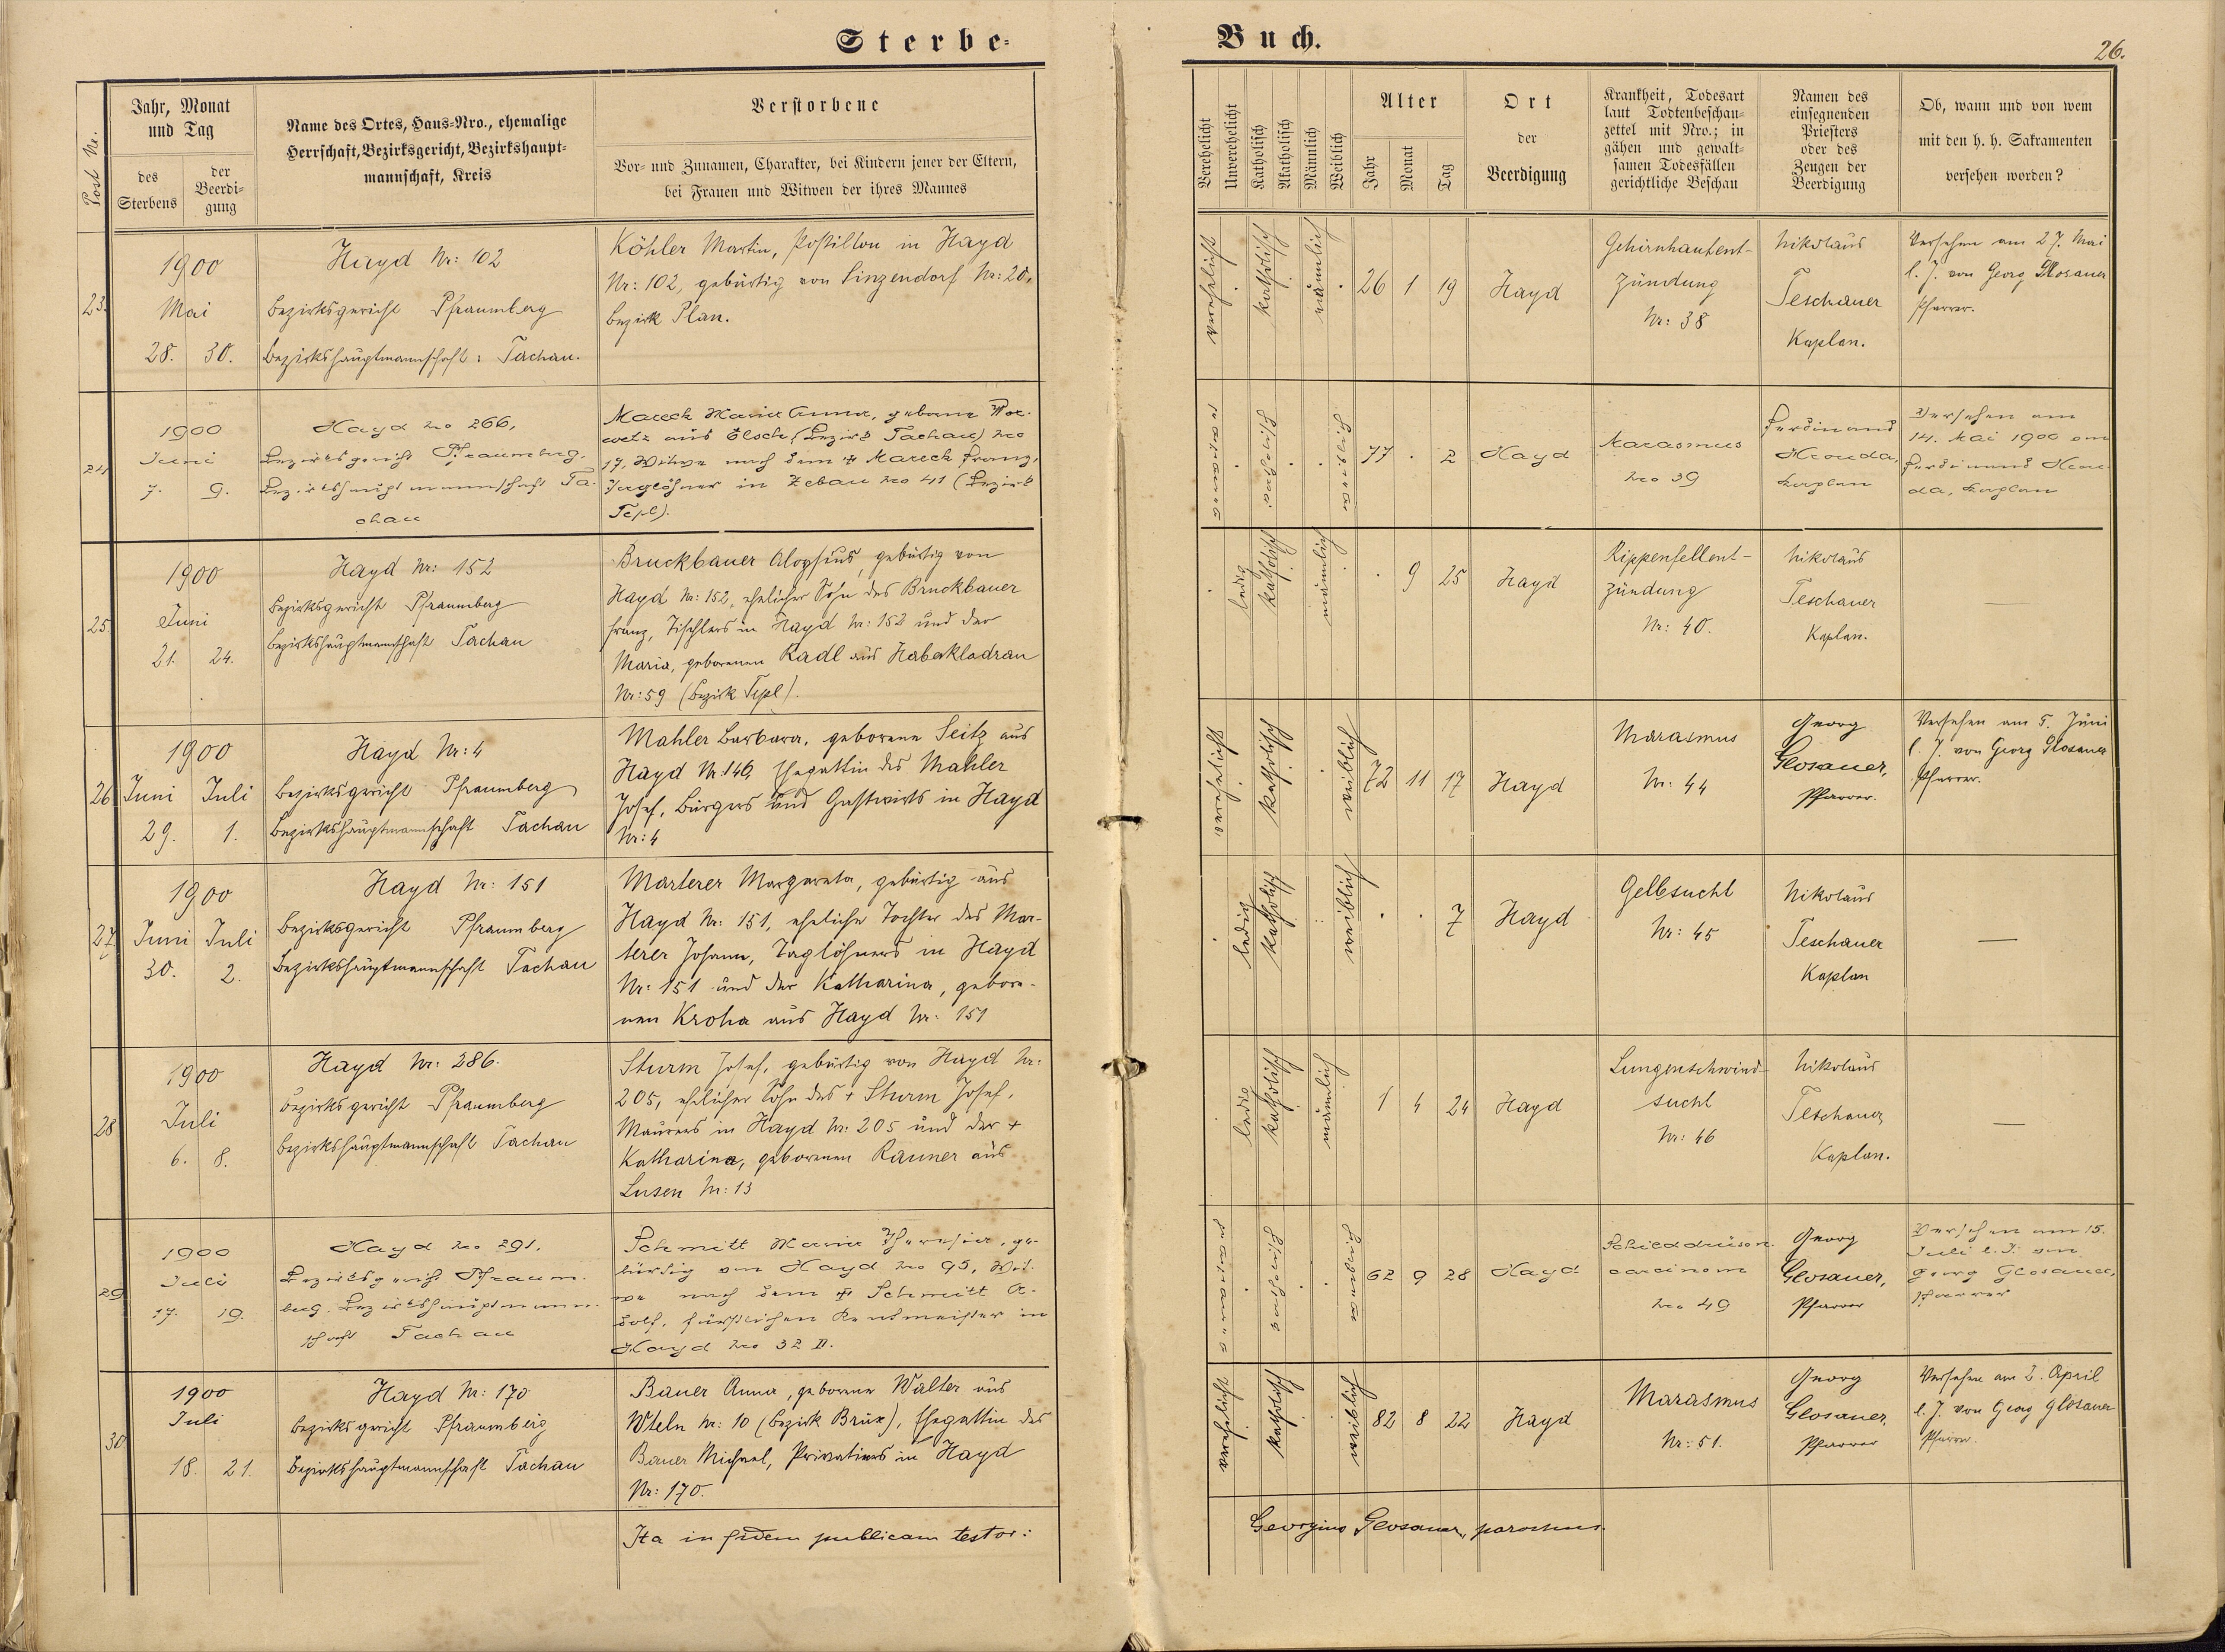 Sterbe-
Buch.
26.
Post Nr.
Jahr, Monat
und Tag
des
Sterbens
der
Beerdi-
gung
Name des Ortes, Haus-Nro., ehemalige
Herrschaft, Bezirksgericht, Bezirkshaupt-
mannschaft, Kreis
Verstorbene
Vor- und Zunamen, Charakter, bei Kindern jener der Eltern,
bei Frauen und Witwen der ihres Mannes
Verehelicht
Unverehelicht
Katholisch
Akatholisch
Männlich
Weiblich
Alter
Jahr
Monat
Tag
Ort
der
Beerdigung
Krankheit, Todesart
laut Todtenbeschau-
zettel mit Nro.; in
gähen und gewalt-
samen Todesfällen
gerichtliche Beschau
Namen des
einsegnenden
Priesters
oder des
Zeugen der
Beerdigung
Ob, wann und von wem
mit den h. h. Sakramenten
versehen worden?
23.
1900
Mai
28. 30.
Hayd Nr: 102
Bezirksgericht Pfraumberg
Bezirkshauptmannschaft: Tachau.
Köhler Martin, Postillon in Hayd
Nr: 102, gebürtig von Sinzendorf Nr: 20,
Bezirk Plan.
verehelicht
katholisch
männlich
26 1 19
Hayd
Gehirnhautent-
zündung
Nr: 38
Nikolaus
Teschauer
Kaplan.
Versehen am 27. Mai
l. J. von Georg Glosauer
Pfarrer.
24
1900
Juni
7. 9.
Hayd No 266,
Bezirksgericht Pfraumberg,
Bezirkshauptmannschaft Ta-
chau
Mareck Maria Anna, geborne Wor-
wetz aus Elsch, (Bezirk Tachau) No
17, Witwe nach dem + Mareck Franz,
Taglöhner in Zebau No 41 (Bezirk
Tepl).
verwitwet
katholisch
weiblich
77 . 2
Hayd
Marasmus
No 39
Ferdinand
Hrouda,
Kaplan
Versehen am
14. Mai 1900 von
Ferdinand Hrou-
da, Kaplan
25.
1900
Juni
21. 24.
Hayd Nr: 152
Bezirksgericht Pfraumberg
Bezirkshauptmannschaft Tachau
Bruckbauer Aloysius, gebürtig von
Hayd Nr: 152, ehelicher Sohn des Bruckbauer
Franz, Tischlers in Hayd Nr: 152 und der
Maria, geborenen Radl aus Habakladrau
Nr: 59 (Bezirk Tepl).
ledig
katholisch
männlich
. 9 25
Hayd
Rippenfellent-
zündung
Nr: 40.
Nikolaus
Teschauer
Kaplan.
—
26
1900
Juni Juli
29. 1.
Hayd Nr: 4
Bezirksgericht Pfraumberg
Bezirkshauptmannschaft Tachau
Mahler Barbara, geborene Seitz aus
Hayd Nr. 146, Ehegattin des Mahler
Josef, Bürgers und Gastwirts in Hayd
Nr: 4
verehelicht
katholisch
weiblich
72 11 17
Hayd
Marasmus
Nr: 44
Georg
Glosauer,
Pfarrer.
Versehen am 5. Juni
l. J. von Georg Glosauer
Pfarrer.
27.
1900
Juni Juli
30. 2.
Hayd Nr: 151
Bezirksgericht Pfraumberg
Bezirkshauptmannschaft Tachau
Marterer Margareta, gebürtig aus
Hayd Nr: 151, eheliche Tochter des Mar-
terer Johann, Taglöhners in Hayd
Nr: 151 und der Katharina, gebore-
nen Kroha aus Hayd Nr: 151
ledig
katholisch
weiblich
. . 7
Hayd
Gelbsucht
Nr: 45
Nikolaus
Teschauer
Kaplan
—
28
1900
Juli
6. 8.
Hayd Nr: 286.
Bezirksgericht Pfraumberg
Bezirkshauptmannschaft Tachau
Sturm Josef, gebürtig von Hayd Nr:
205, ehelicher Sohn des + Sturm Josef,
Maurers in Hayd Nr: 205 und der +
Katharina, geborenen Rauner aus
Lusen Nr: 13
ledig
katholisch
männlich
1 4 24
Hayd
Lungenschwind-
sucht
Nr: 46
Nikolaus
Teschauer
Kaplan.
—
29
1900
Juli
17. 19.
Hayd No 291,
Bezirksgericht Pfraum-
berg, Bezirkshauptmann-
schaft Tachau
Schmitt Maria Theresia, ge-
bürtig von Hayd No 95, Wit-
we nach dem + Schmitt A-
dolf, fürstlichen Rentmeister in
Hayd No 32 II.
verwitwet
katholisch
weiblich
62 9 28
Hayd
Schilddrüsen-
carcinom
No 49
Georg
Glosauer,
Pfarrer
Versehen am 15.
Juli l. J. von
Georg Glosauer,
Pfarrer
30
1900
Juli
18. 21.
Hayd Nr: 170
Bezirksgericht Pfraumberg
Bezirkshauptmannschaft Tachau
Bauer Anna, geborene Walter aus
Wteln Nr: 10 (Bezirk Brüx), Ehegattin des
Bauer Michael, Privatiers in Hayd
Nr: 170.
verehelicht
katholisch
weiblich
82 8 22
Hayd
Marasmus
Nr: 51.
Georg
Glosauer,
Pfarrer
Versehen am 2. April
l. J. von Georg Glosauer
Pfarrer.
Ita in fidem publicam testor:
Georgius Glosauer, parochus.